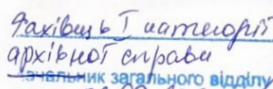 Фахівець I категорії
архівної справи
начальник загального відділу